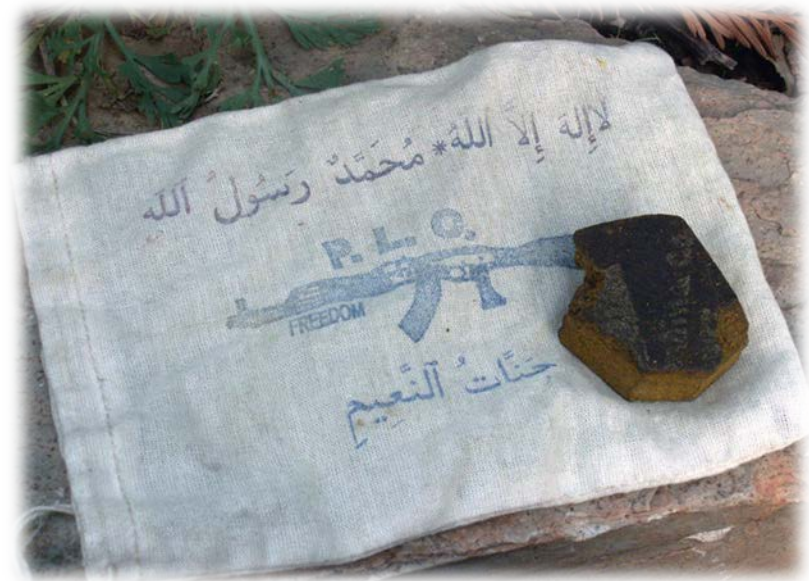 لَاإِلَهَ إِلَّا اللهُ * مُحَمَّدٌ رَسُولُ اَللهِ
P. L. O.
FREEDOM
جَنَّاتُ اَلنَّعِيمِ